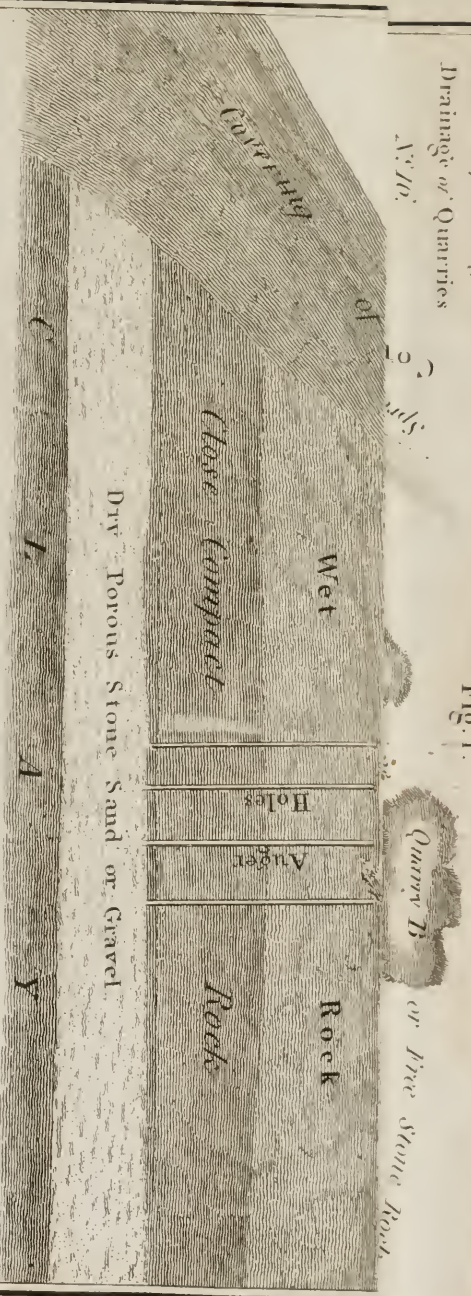 Drainage of Quarries
No. 16.
Fig. 1.
Quarry B or Free Stone Rock
Covering of
Wet Rock
Close Compact Rock
Auger
Holes
Dry Porous Stone Sand or Gravel
CLAY